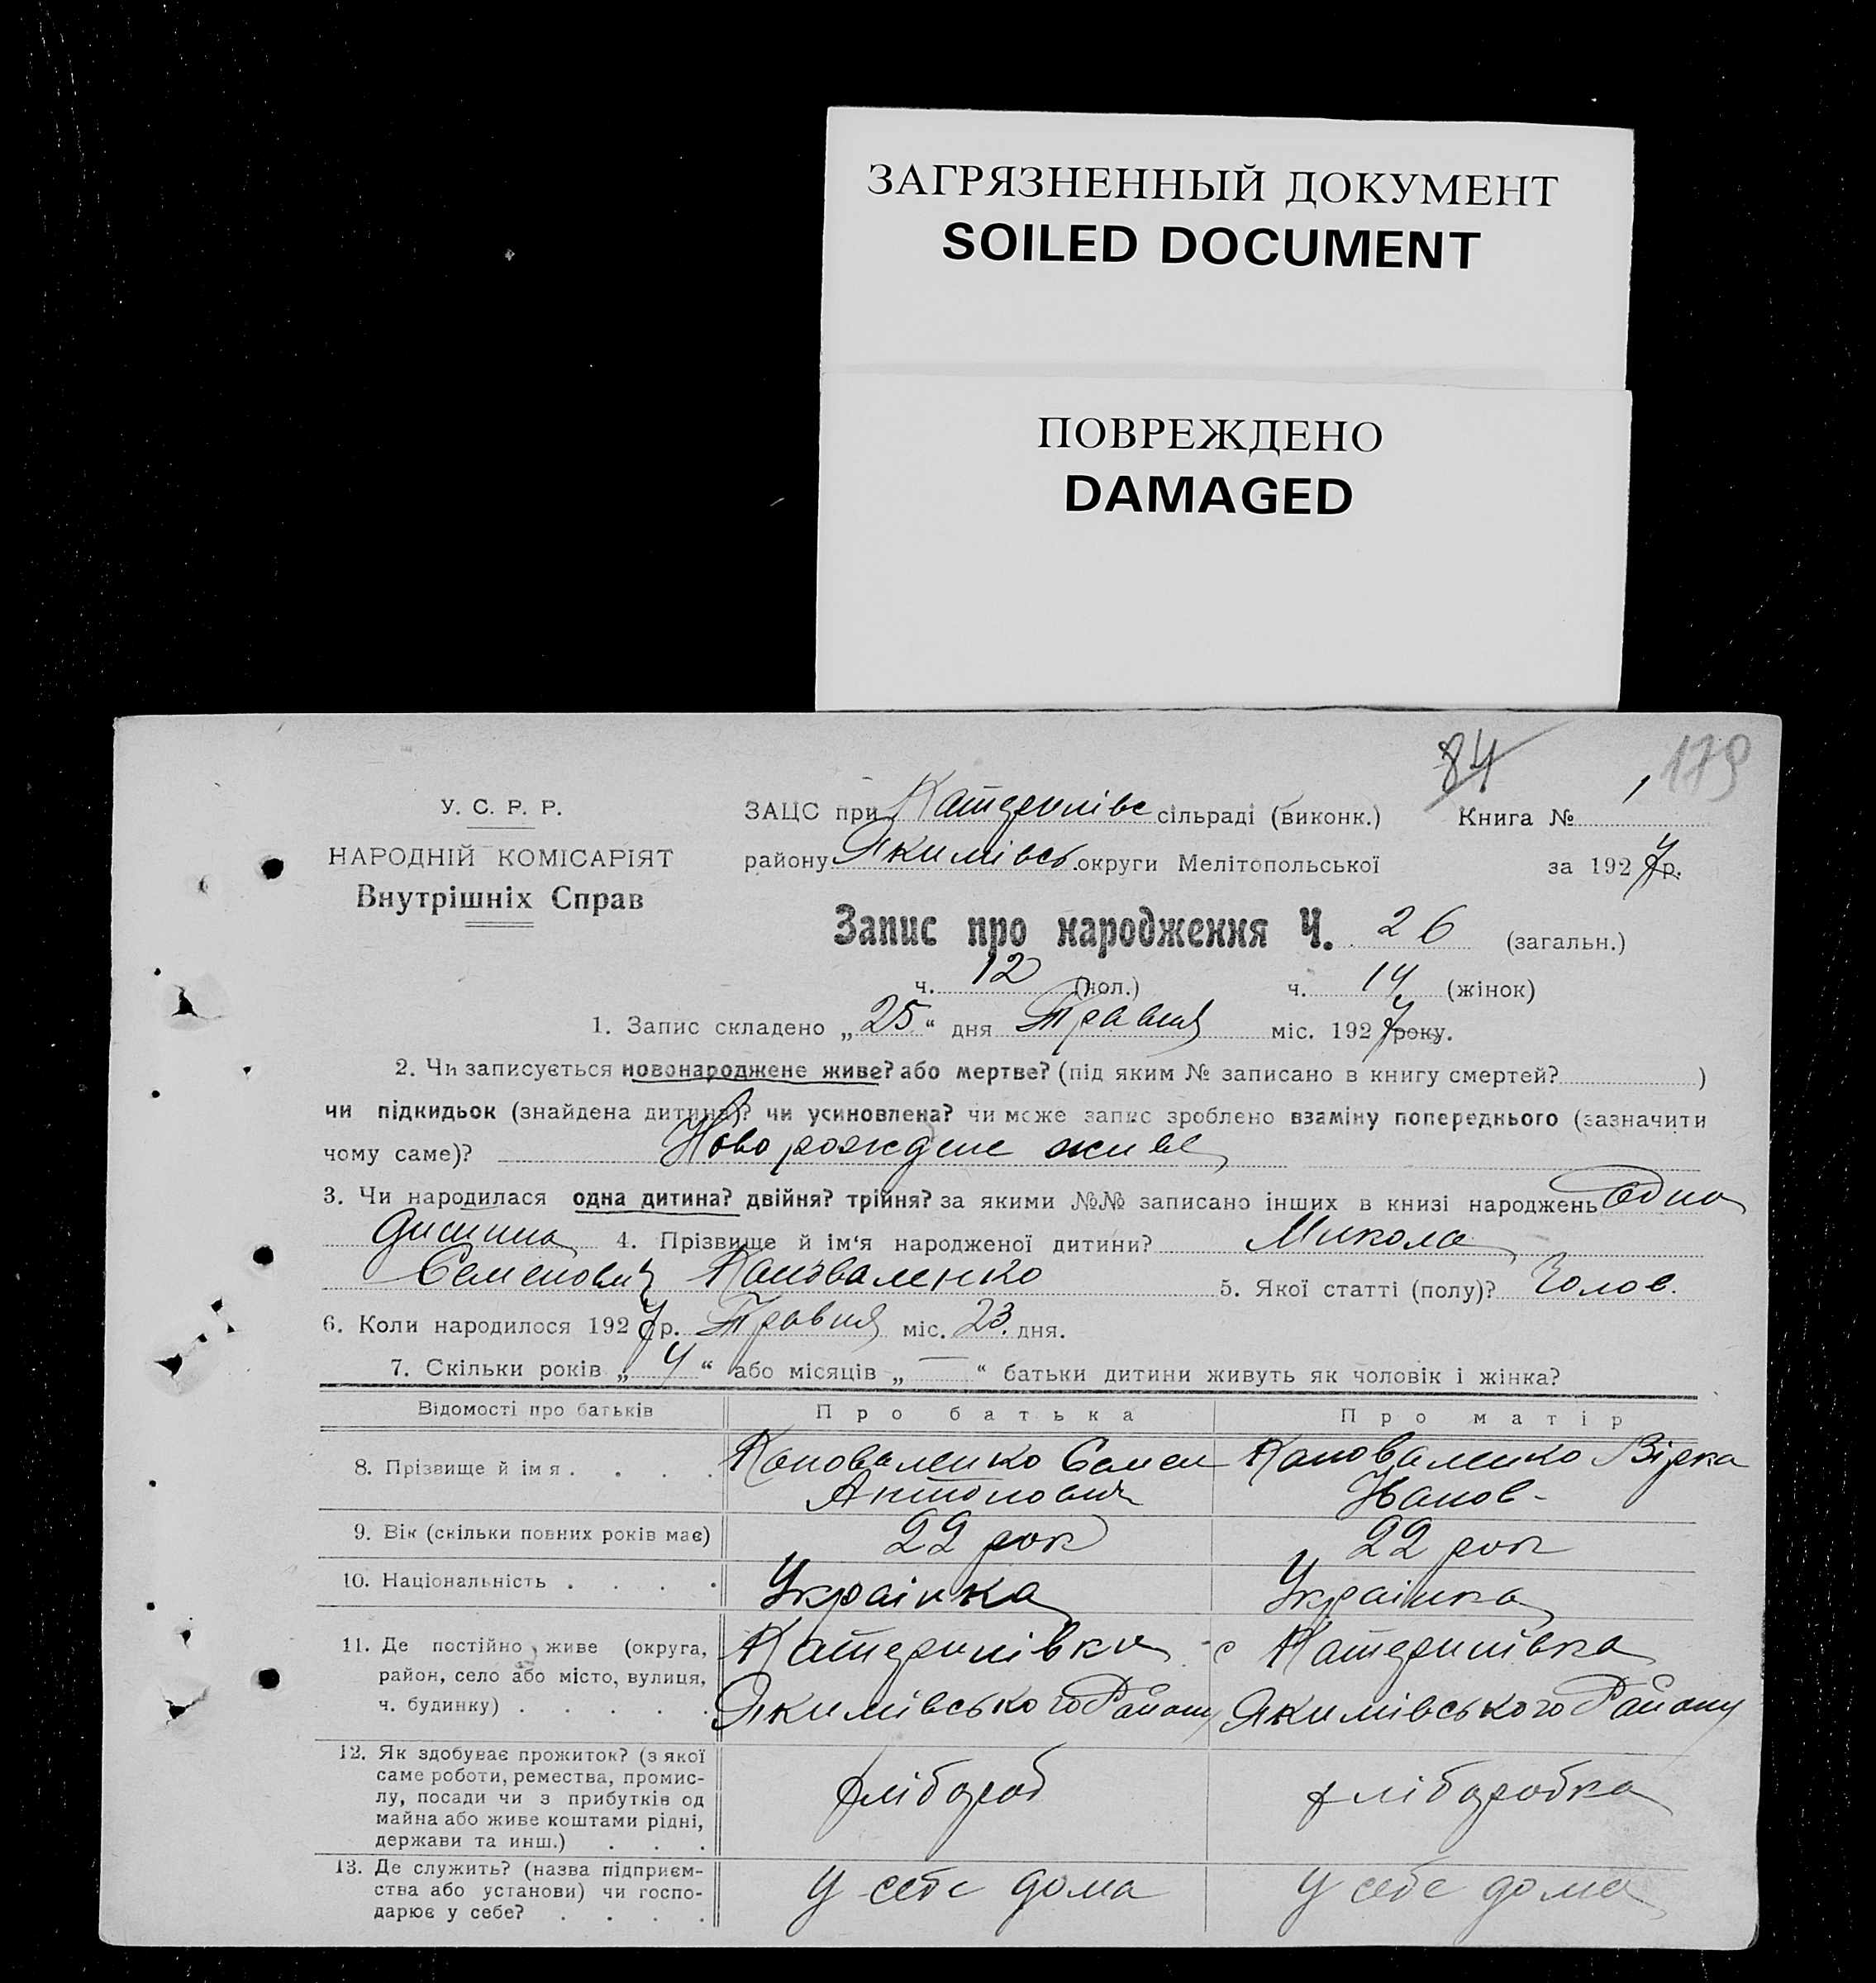 ЗАГРЯЗНЕННЫЙ ДОКУМЕНТ
SOILED DOCUMENT
ПОВРЕЖДЕНО
DAMAGED
84 179
У. С. Р. Р.
НАРОДНІЙ КОМІСАРІЯТ
Внутрішніх Справ
ЗАЦС при Катеринівс сільраді (виконк.) Книга № 1
району Якимівсь округи Мелітопольської за 1927 р.
Запис про народження Ч. 26 (загальн.)
ч. 12 (чол.) ч. 14 (жінок)
1. Запис складено „25“ дня Травня міс. 1927 року.
2. Чи записується новонароджене живе? або мертве? (під яким № записано в книгу смертей? )
чи підкидьок (знайдена дитина)? чи усиновлена? чи може запис зроблено взаміну попереднього (зазначити
чому саме)? Ново рождене живе
3. Чи народилася одна дитина? двійня? трійня? за якими №№ записано інших в книзі народжень Одна
дитина 4. Прізвище й ім‘я народженої дитини? Микола
Семенович Коноваленко 5. Якої статті (полу)? Чолов.
6. Коли народилося 1927 р. Травня міс. 23 дня.
7. Скільки років „4“ або місяців „—“ батьки дитини живуть як чоловік і жінка?
Відомості про батьків Про батька Про матір
8. Прізвище й ім я . . . . Коноваленко Семен Коноваленко Вірка
Антонович Іванов-
9. Вік (скільки повних років має) 22 рок 22 рок
10. Національність . . . . Украінка Украінка
11. Де постійно живе (округа, Катеринівка с Катеринівка
район, село або місто, вулиця,
ч. будинку) . . . . . Якимівського Району Якимівського Району
12. Як здобуває прожиток? (з якої
саме роботи, ремества, промис-
лу, посади чи з прибутків од хлібороб хліборобка
майна або живе коштами рідні,
держави та инш.) . . .
13. Де служить? (назва підприєм-
ства або установи) чи госпо- У себе дома У себе дома
дарює у себе? . . . .